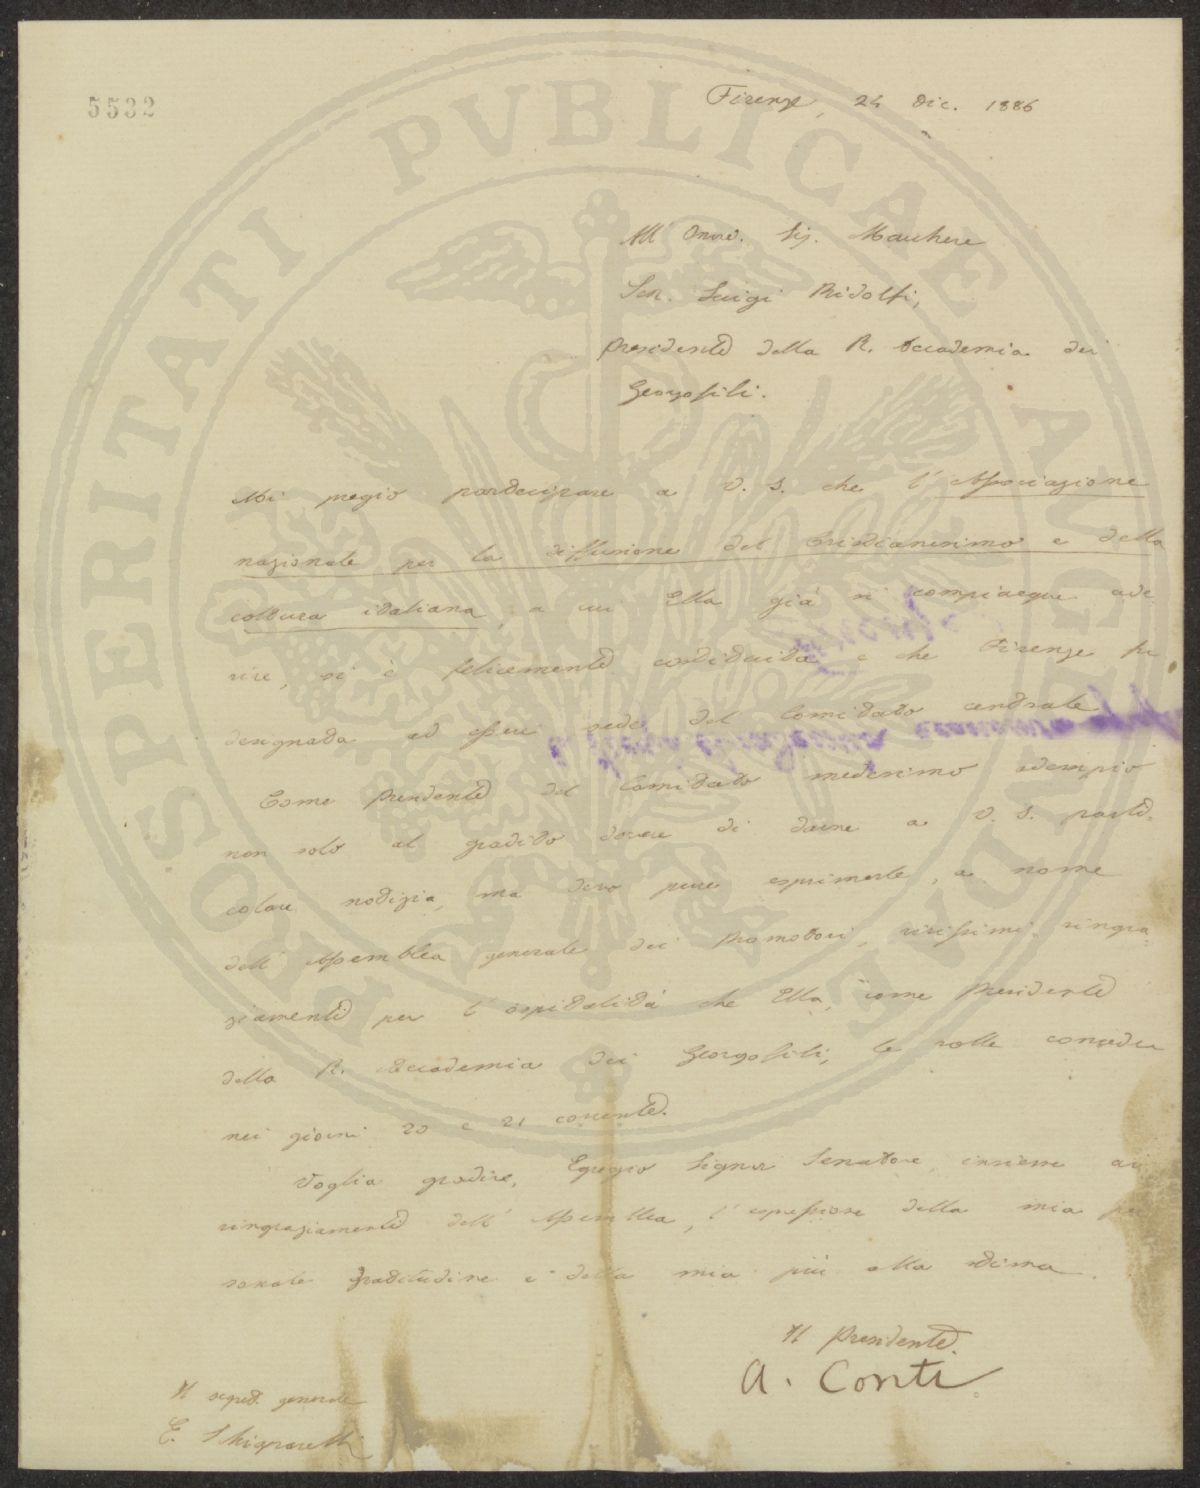 5532
Firenze, 24 Dic. 1886
All' Onor. Sig. Marchese
Sen. Luigi Ridolfi,
Presidente della R. Accademia dei
Georgofili.
Mi pregio partecipare a V. S. che l'Associazione
nazionale per la diffusione del Cristianesimo e della
coltura italiana, a cui Ella già si compiacque ade-
rire, si è felicemente costituita e che Firenze fu
designata ad essere sede del Comitato centrale
Come Presidente del Comitato medesimo adempio
non solo al gradito dovere di darne a V. S. parti-
colare notizia, ma devo pure esprimerle, a nome
dell'Assemblea generale dei Promotori, vivissimi ringra-
ziamenti per l'ospitalità che Ella, come Presidente
della R. Accademia dei Georgofili, le volle concedere
nei giorni 20 e 21 corrente.
Voglia gradire, Egregio Signor Senatore, insieme ai
ringraziamenti dell'Assemblea, l'espressione della mia per
sonale gratitudine e della mia più alta stima.
Il Presidente.
A. Conti
Il segret. generale
E. Schiaparelli
PROSPERITATI PVBLICAE AVGENDAE